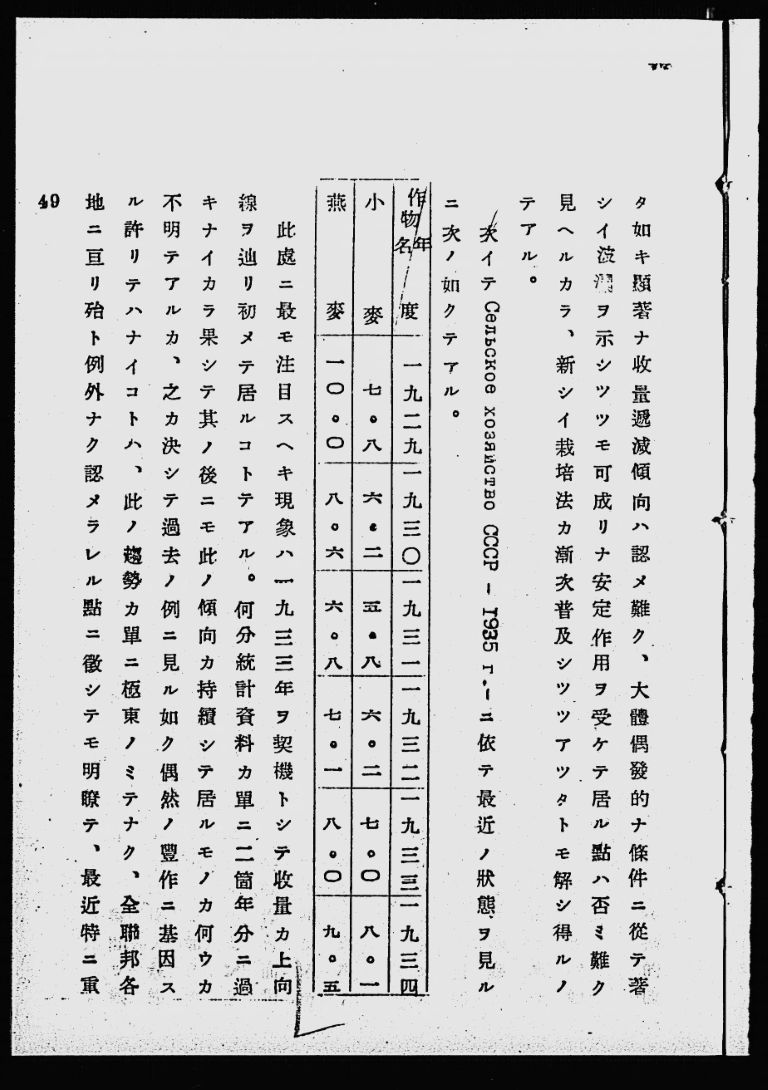 タ如キ顯著ナ收量遞減傾向ハ認メ難ク、大體偶發的ナ條件ニ從テ著
シイ波瀾ヲ示シツツモ可成リナ安定作用ヲ受ケテ居ル點ハ否ミ難ク
見ヘルカラ、新シイ栽培法カ漸次普及シツツアツタトモ解シ得ルノ
テアル。
次イテ Сельское хозяйство СССР - 1935 г.-ニ依テ最近ノ狀態ヲ見ル
ニ次ノ如クテアル。
作物名 年度 一九二九 一九三〇 一九三一 一九三二 一九三三 一九三四
小麥 七。八 六。二 五。八 六。二 七。〇 八。一
燕麥 一〇。〇 八。六 六。八 七。一 八。〇 九。五
此處ニ最モ注目スヘキ現象ハ一九三三年ヲ契機トシテ收量カ上向
線ヲ辿リ初メテ居ルコトテアル。何分統計資料カ單ニ二箇年分ニ過
キナイカラ果シテ其ノ後ニモ此ノ傾向カ持續シテ居ルモノカ何ウカ
不明テアルカ、之カ決シテ過去ノ例ニ見ル如ク偶然ノ豐作ニ基因ス
ル許リテハナイコトハ、此ノ趨勢カ單ニ極東ノミテナク、全聯邦各
地ニ亘リ殆ト例外ナク認メラレル點ニ徵シテモ明瞭テ、最近特ニ重
49